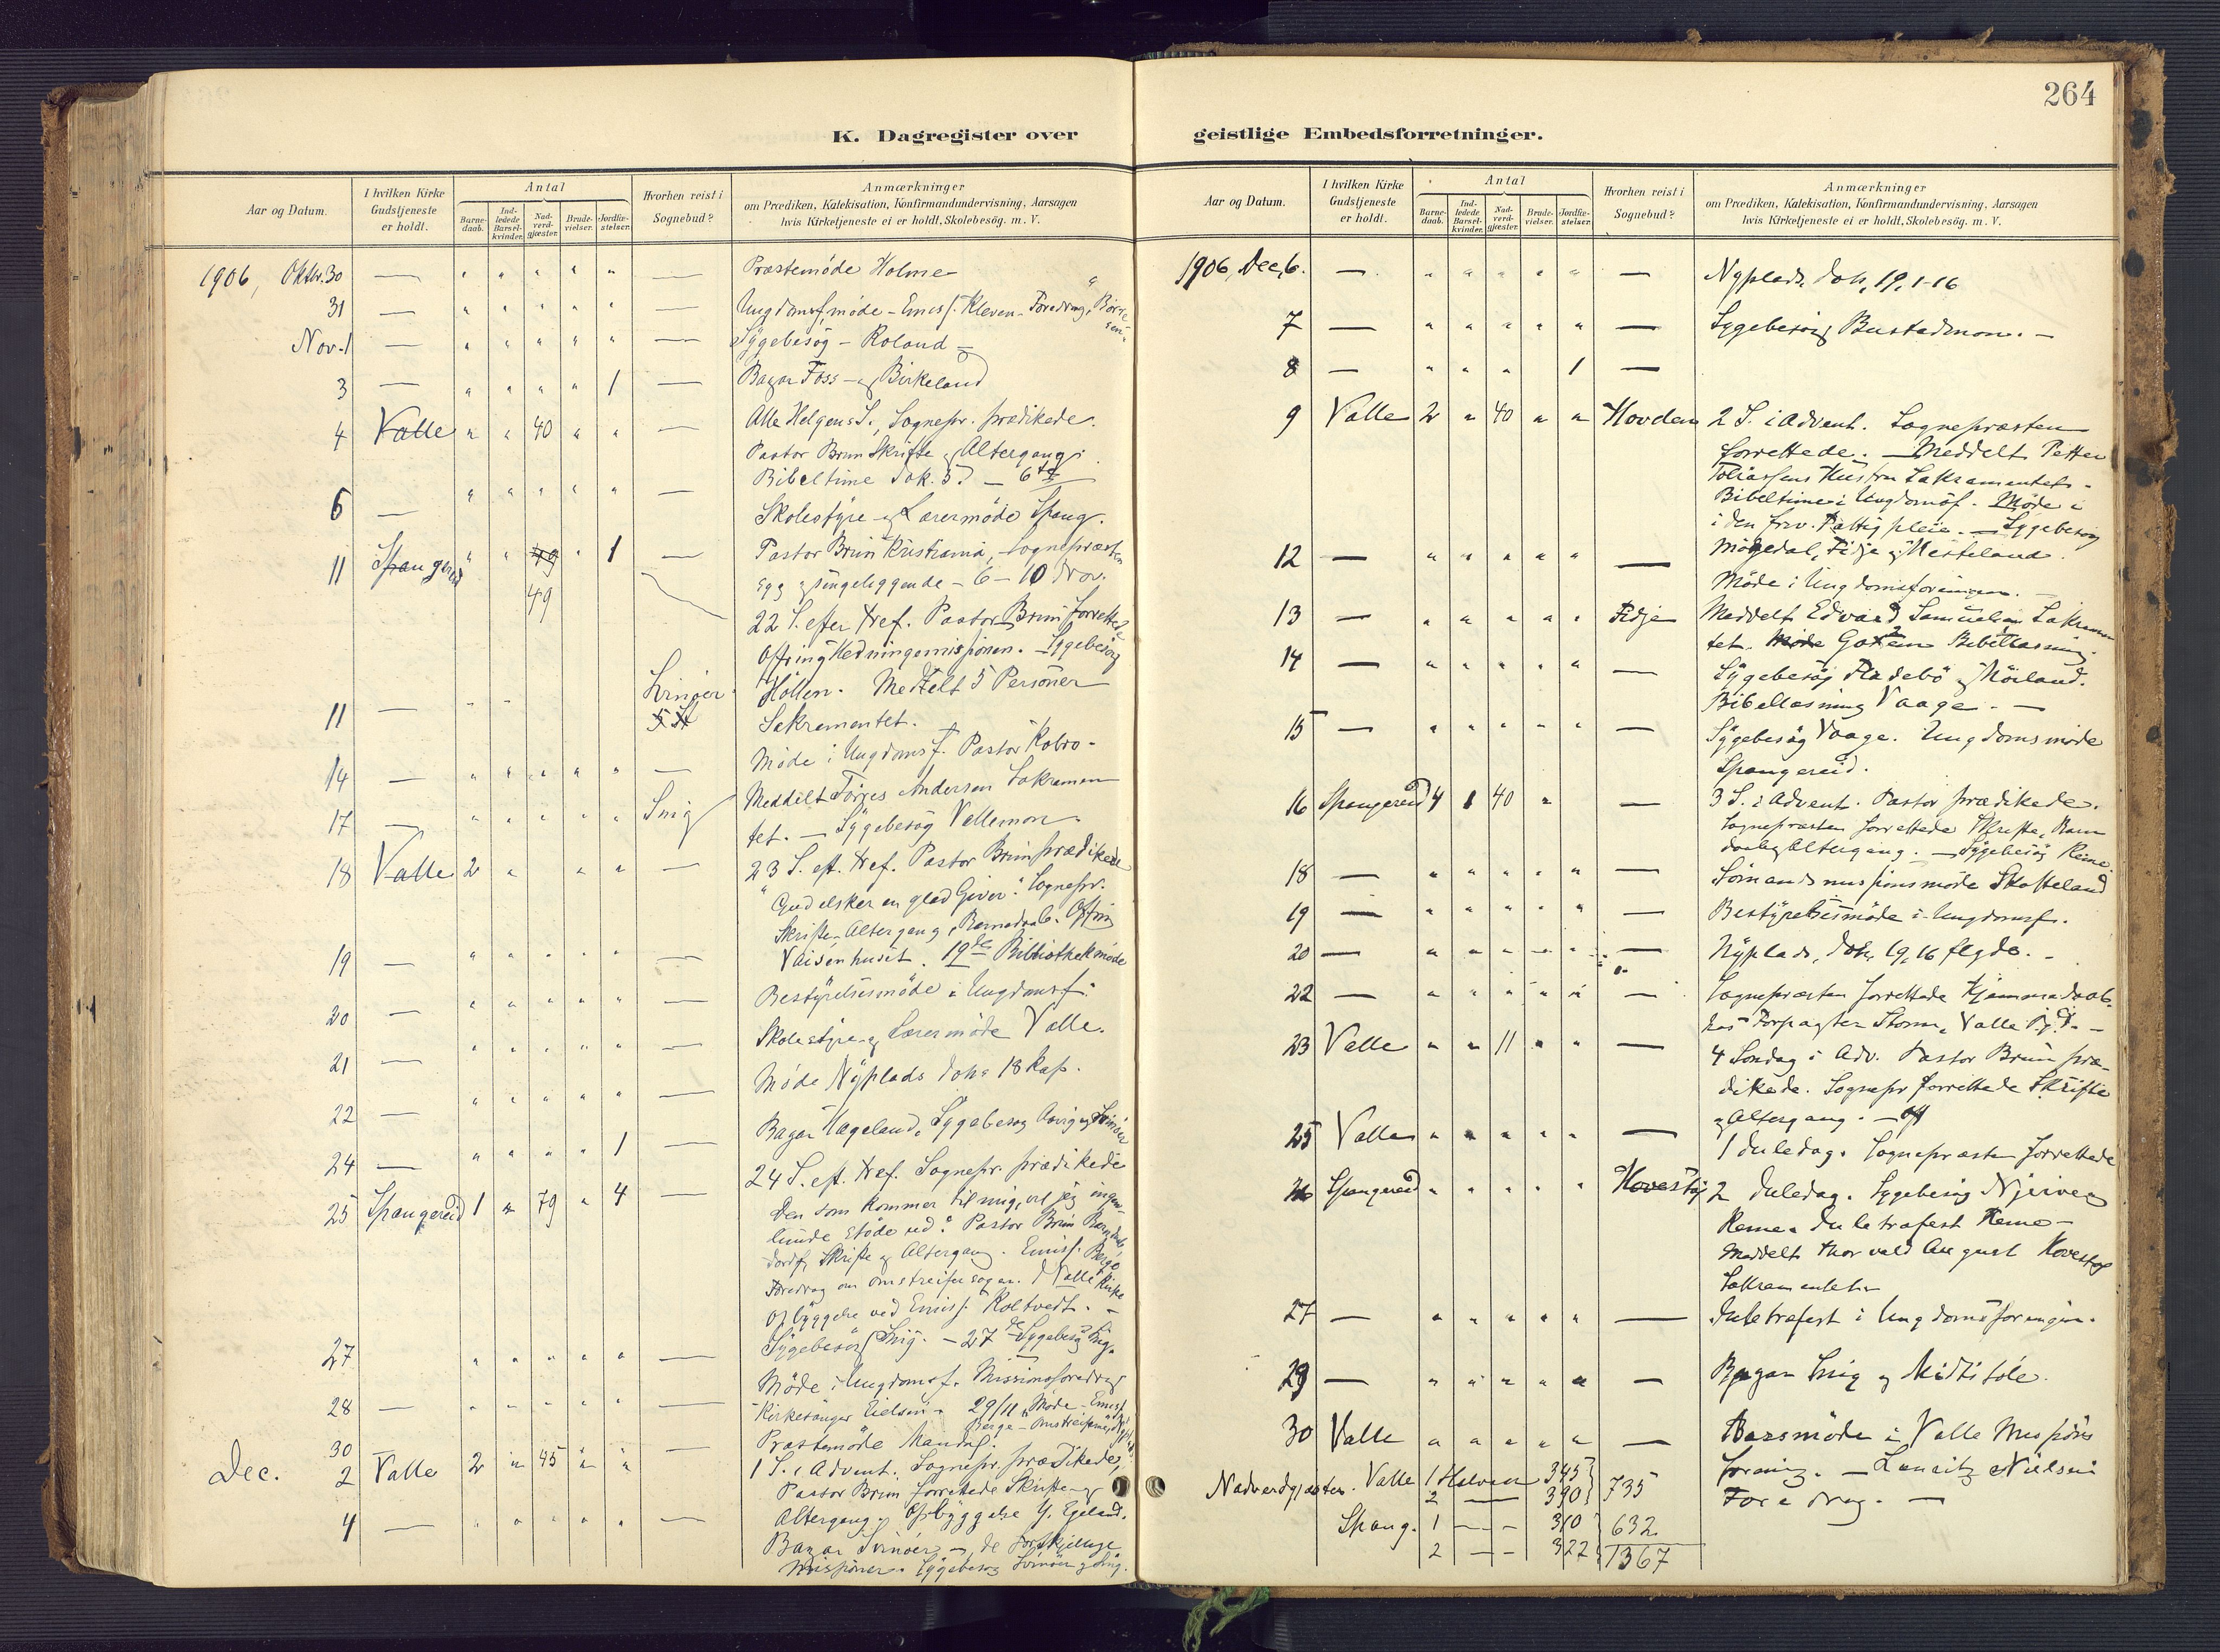 264
K. Dagregister over geistlige Embedsforretninger.
Aar og Datum.
I hvilken Kirke Gudstjeneste er holdt.
Antal
Barne-daab.
Ind-ledede Barsel-kvinder.
Nad-verd-gjæster.
Brude-vielser.
Jordfæ-stelser.
Hvorhen reist i Sognebud?
Anmærkninger
om Prædiken, Katekisation, Konfirmandundervisning, Aarsagen
hvis Kirketjeneste ei er holdt, Skolebesög. m. V.
1906, Oktbr. 30 — " " " " " — Præstemöde Holme
31 — " " " " " — Ungdomsf. möde - Emiss. Kleven - Foredrag,
Nov. 1 — " " " " " — Sygebesög - Roland
3 — " " " " 1 — Bazar Foss - og Birkeland
4 Valle " " 40 " " — Alle Helgens S. Sognepr. prædikede.
Pastor Brun Skrifte og Altergang.
Bibeltime
6 — " " " " " — Skolestyre og Lærermöde Spang.
11 Spangereid " " 49 " 1 — Pastor Brun Kristiania, Sognepræsten
49
sengeliggende - 6 - 10 Nov.
22 S. efter Tref. Pastor Brun forrettede
Offring Hedningemissjonen. Sygebesög
11 — Svinöer Höllen. Meddelt 5 Personer
Sakramentet.
14 — " " " " " — Möde i Ungdomsf. Pastor
17 — " " " " " Snig Meddelt Törres Andersen Sakramen
tet. - Sygebesög Vallemoen
18 Valle 2 " " " — 23 S. eft. Tref. Pastor Brun prædikede
"Gud elsker en glad Giver." Sognepr.
Skrifte - Altergang, Barnedaab. Offring
19 — " " " " " — Vaisenhuset. 19de Bibliothekmöde
20 — " " " " " — Bestyrelsesmöde i Ungdomsf.
21 — " " " " " — Skolestyre og Lærermöde Valle.
22 — " " " " " — Möde Nyplads Joh. 18 Kap.
24 — " " " " 1 — Bazar Hageland. Sygebesög og Svinöer
25 Spangereid 1 " 79 " 4 — 24 S. eft. Tref. Sognepr. prædikede
Den som kommer til mig, vil jeg ingen-
lunde stöde ud." Pastor Brun Barnedaab
Jordf. Skrifte og Altergang. Emiss. Berge
Foredrag om Omstreifersagen. I Valle Kirke
Opbyggelse ved Emiss. Koltvedt. -
Sygebesög Snig. - 27de Sygebesög Snig.
27 " " " " " — Möde i Ungdomsf. Missionsforedrag
28 — " " " " " — Kirkesanger Eielsen. 29/11 Möde - Emiss.
Berge -
30 — Præstemöde Mandal.
Dec. 2 Valle 2 " 45 " " 1 S. i Advent. Sognepr. prædikede,
Pastor Brun forrettede Skrifte og
Altergang. Opbyggelse Y. Egeland.
4 — " " " " " — Bazar Svinöer - de forskjellige
Missioner. Sygebesög Svinöer og Snig.
Aar og Datum.
I hvilken Kirke Gudstjeneste er holdt.
Antal
Barne-daab.
Ind-ledede Barsel-kvinder.
Nad-verd-gjæster.
Brude-vielser.
Jordfæ-stelser.
Hvorhen reist i Sognebud?
Anmærkninger
om Prædiken, Katekisation, Konfirmandundervisning, Aarsagen
hvis Kirketjeneste ei er holdt, Skolebesög. m. V.
1906, Dec. 6. — " " " " " — Nyplads Joh. 19, 1-16
7 — " " " " " — Sygebesög Bustadmoen. -
8 — " " " 1 —
9 Valle 2 " 40 " " Hovden 2 S. i Advent. Sognepræsten
forrettede. - Meddelt Petter
Tobiassens Hustru Sakramentet.
Bibeltime i Ungdomsf. Möde i
i den frv. Fattigpleie. - Sygebesög
12 — " " " " " — Mögedal, Fidje og Vesteland.
Möde i Ungdomsforeningen. -
13 — " " " " " Fidje Meddelt Edvard Samuelsen Sakramen
tet. Bibellæsning.
14 — " " " " " — Sygebesög og Möiland.
Bibellæsning Vaage. -
15 — " " " " " — Sygebesög Vaage. Ungdomsmöde
Spangereid.
16 Spangereid 4 1 40 " — 3 S. i Advent. Pastor prædikede.
Sognepræsten forrettede Skrifte, Barne
daab og Altergang. - Sygebesög Reme
18 — " " " " " — Sömandsmissionsmöde Skofteland
19 — " " " " " — Bestyrelsesmöde i Ungdomsf.
20 — " " " " " — Nyplads, Joh. 19, 16 flgde. -
22 — " " " " " — Sognepræsten forrettede Hjemmedaab
hos Forpagter Storm, Valle Pg. -
23 Valle " " 11 " " — 4 Söndag i Adv. Pastor Brun præ-
dikede. Sognepr. forrettede Skrifte
og Altergang. -
25 Valle " " " " " — 1 Juledag. Sognepræsten forrettede
26 Spangereid " " " " " Hovestög 2 Juledag. Sygebesög Njerve og
Reme. Juletræfest Reme -
Meddelt Thorvald August Hovestög
Sakramentet.
27 — " " " " " — Juletræfest i Ungdomsforeningen.
29 — " " " " " — Bazar Snig og Midtböe.
30 Valle " " " " " — Aarsmöde i Valle Missions
forening. - Lauritz Nielsen
Foredrag. -
Nadverdgjæster. Valle 1 Halvaar 345 } 735
2 — 390 }
Spang. 1 — - 310 } 632
2 — - 322 }
1367